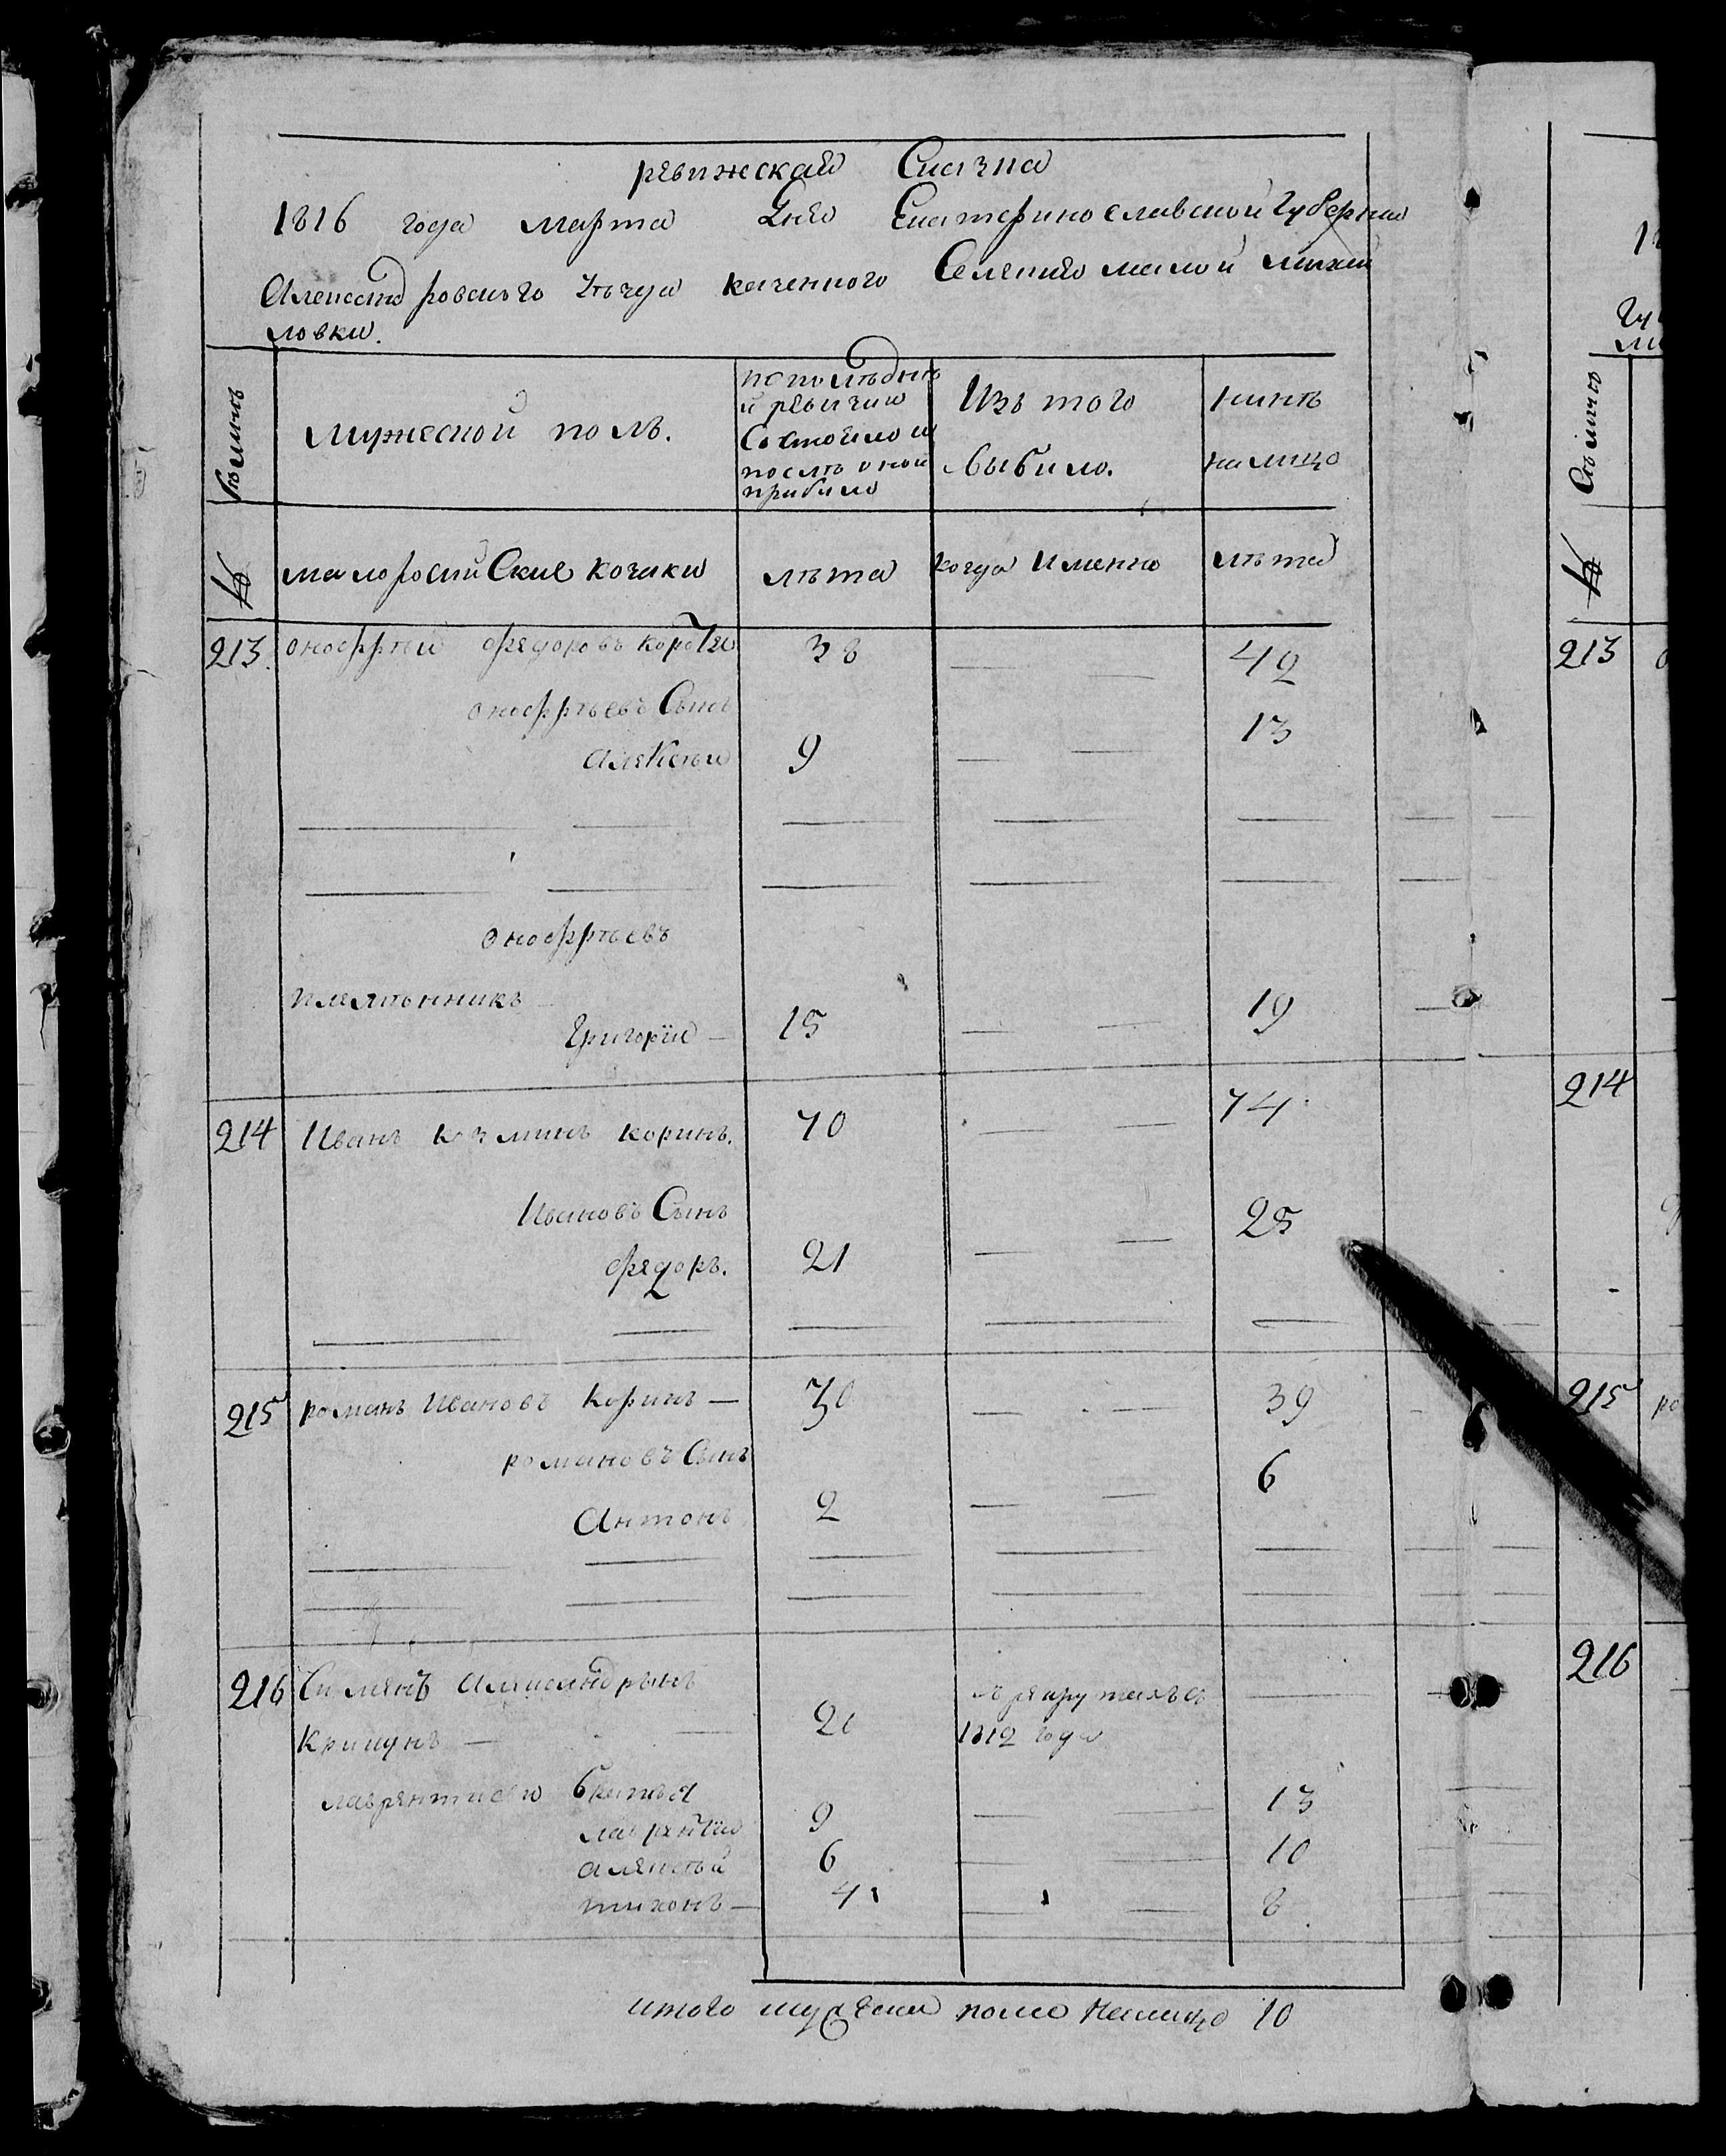 ревижская Сказка
1816 года марта дня Екатеринославской Губернии
Александровского уезда казенного Селения малой михай
ловки.
Мужеской полъ.
по последне
й ревизии
Состояло и
после оной
прибыло
Изъ того
выбыло.
ныне
налицо
Семьи
№
малоросийские козаки
лета
когда Именно
лета
213
онофрий федоровъ
38
42
онофрьевъ Сынъ
Алексей
9
13
онофрьевъ
племянникъ
Григорий
15
19
214
Иванъ козминъ коринъ.
70
74
Ивановъ Сынъ
федоръ.
21
25
215
романъ Ивановъ Коринъ
39
романовъ Сынъ
6
Антонъ
2
216
Симянъ
20
в рекруты
1812 года
братья
лаврентий
9
13
алексей
6
10
тихонъ
4
8
итого мужеска пола налицо 10
Семьи
№
213
214
215
ро
216